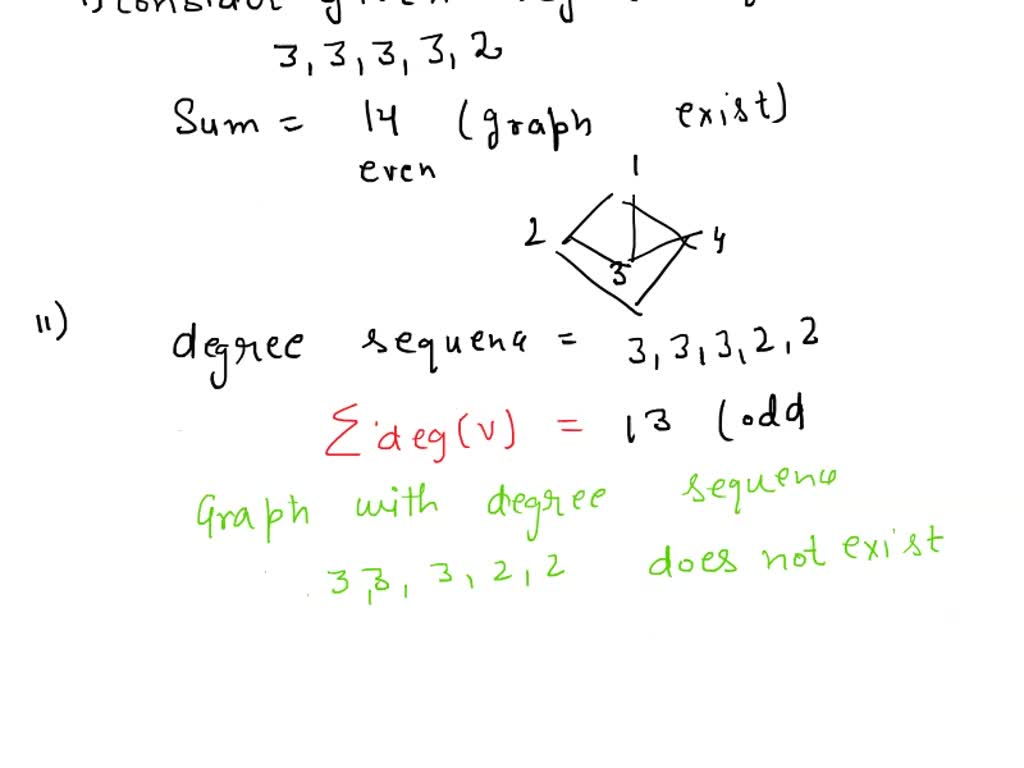 3, 3, 3, 3, 2
Sum = 14 (graph exist)
even
1
2
4
3
11)
degree sequence = 3, 3, 3, 2, 2
∑ deg(v) = 13 (odd
Graph with degree sequence
3, 3, 3, 2, 2 does not exist